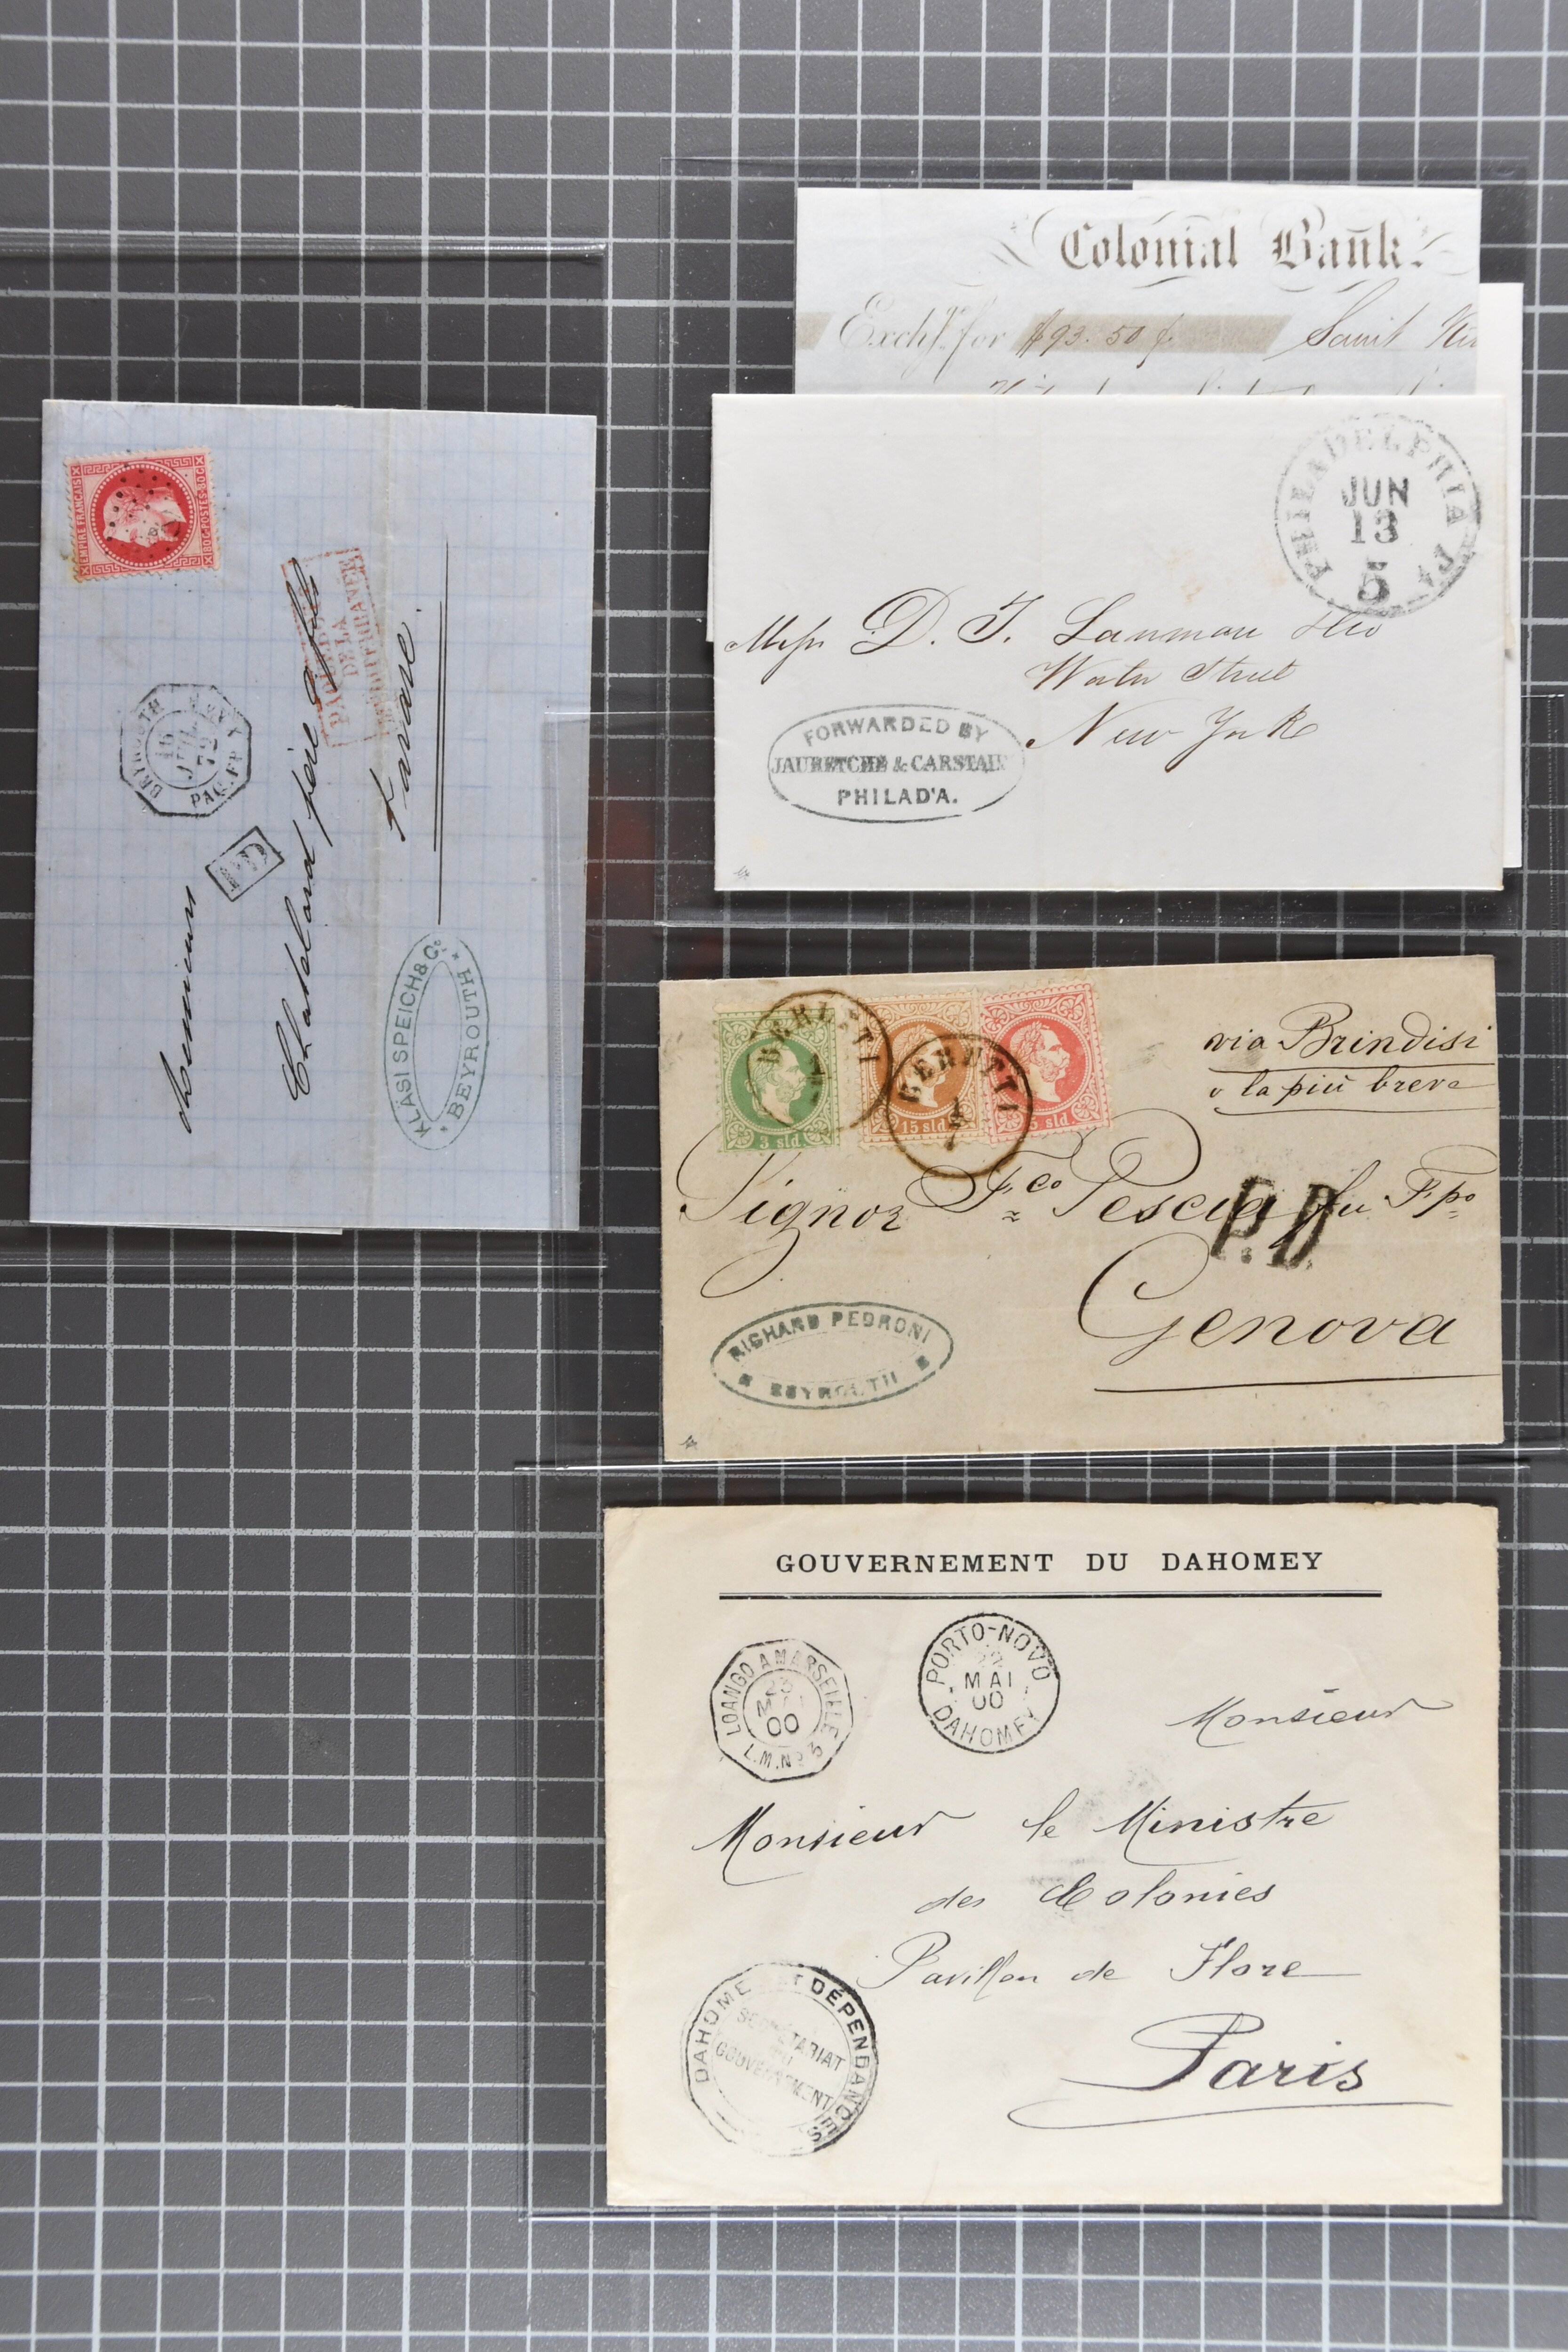 EMPIRE FRANÇAIS
80 C · POSTES · 80 C
BEYROUTH
16
JUIL
72
PAQ. FR.
PD
PAQUEBOTS
DE LA
MÉDITERRANÉE
Messieurs
Chatelard père & fils
Tarare
KLÄSI SPEICH & Co.
* BEYROUTH *
Colonial Bank.
Exch. for $93.50
Saint
PHILADELPHIA Pa
JUN
13
5
Messrs D. T. Lanman &Co
Water Street
New York
FORWARDED BY
JAURETCHE & CARSTAIR
PHILAD'A.
3 sld.
15 sld.
5 sld.
BERUTTI
BERUTTI
7
via Brindisi
o la più breve
Signor Fco Pescia fu Fpo
P.D.
Genova
RICHARD PEDRONI
BEYROUTH
GOUVERNEMENT DU DAHOMEY
LOANGO A MARSEILLE
23
MAI
00
L.M.No 3
PORTO-NOVO
MAI
00
DAHOMEY
Monsieur
Monsieur le Ministre
des Colonies
Pavillon de Flore
Paris
DAHOMEY ET DÉPENDANCES
SECRÉTARIAT
DU
GOUVERNEMENT